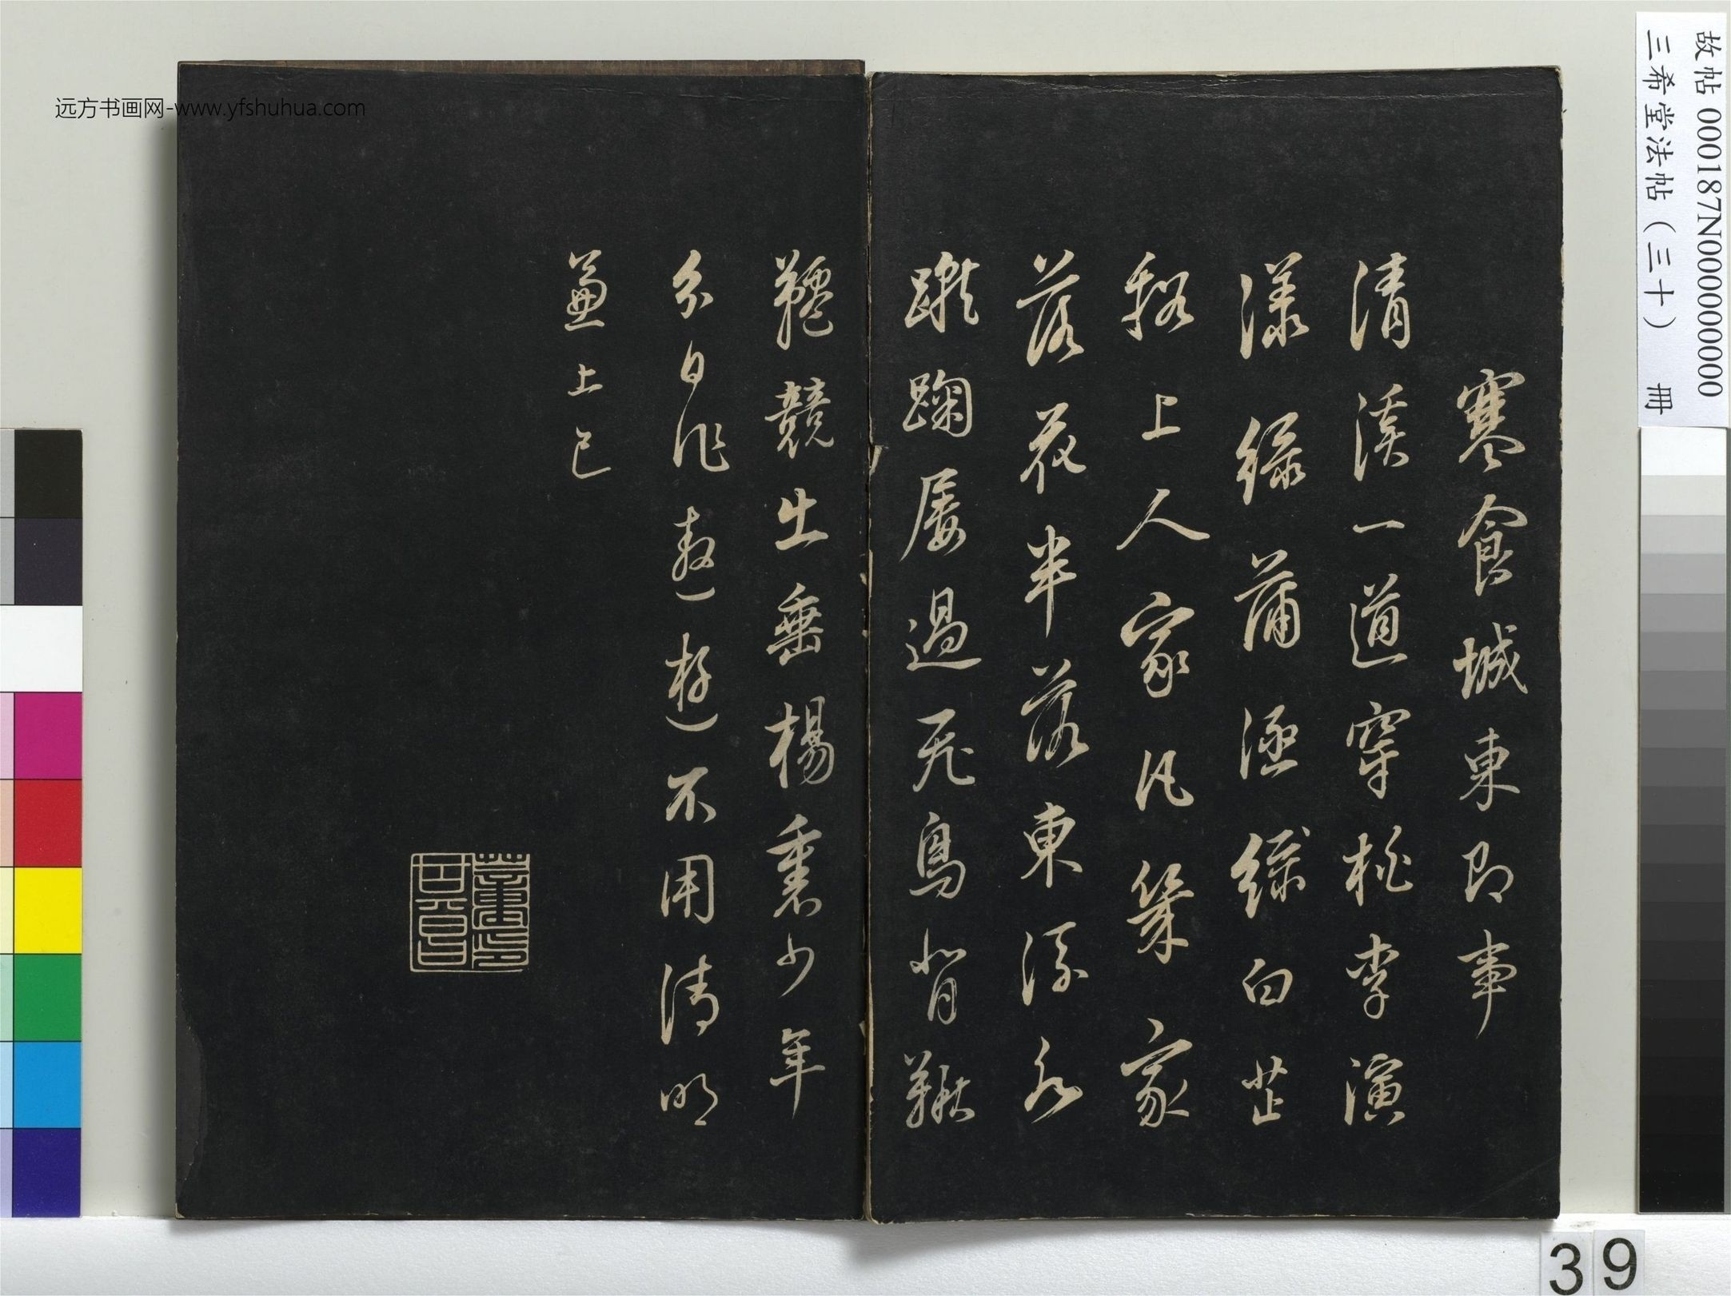 远方书画网-www.yfshuhua.com
故帖 000187N000000000
三希堂法帖（三十） 冊
寒食城東即事
清溪一道穿桃李演
漾綠蒲涵綠白芷
谿上人家凡幾家
落花半落東流水
蹴踘屢過飛鳥背鞦
韆競出垂楊裏少年
分日作遨遊不用清明
兼上巳
董其昌印
39